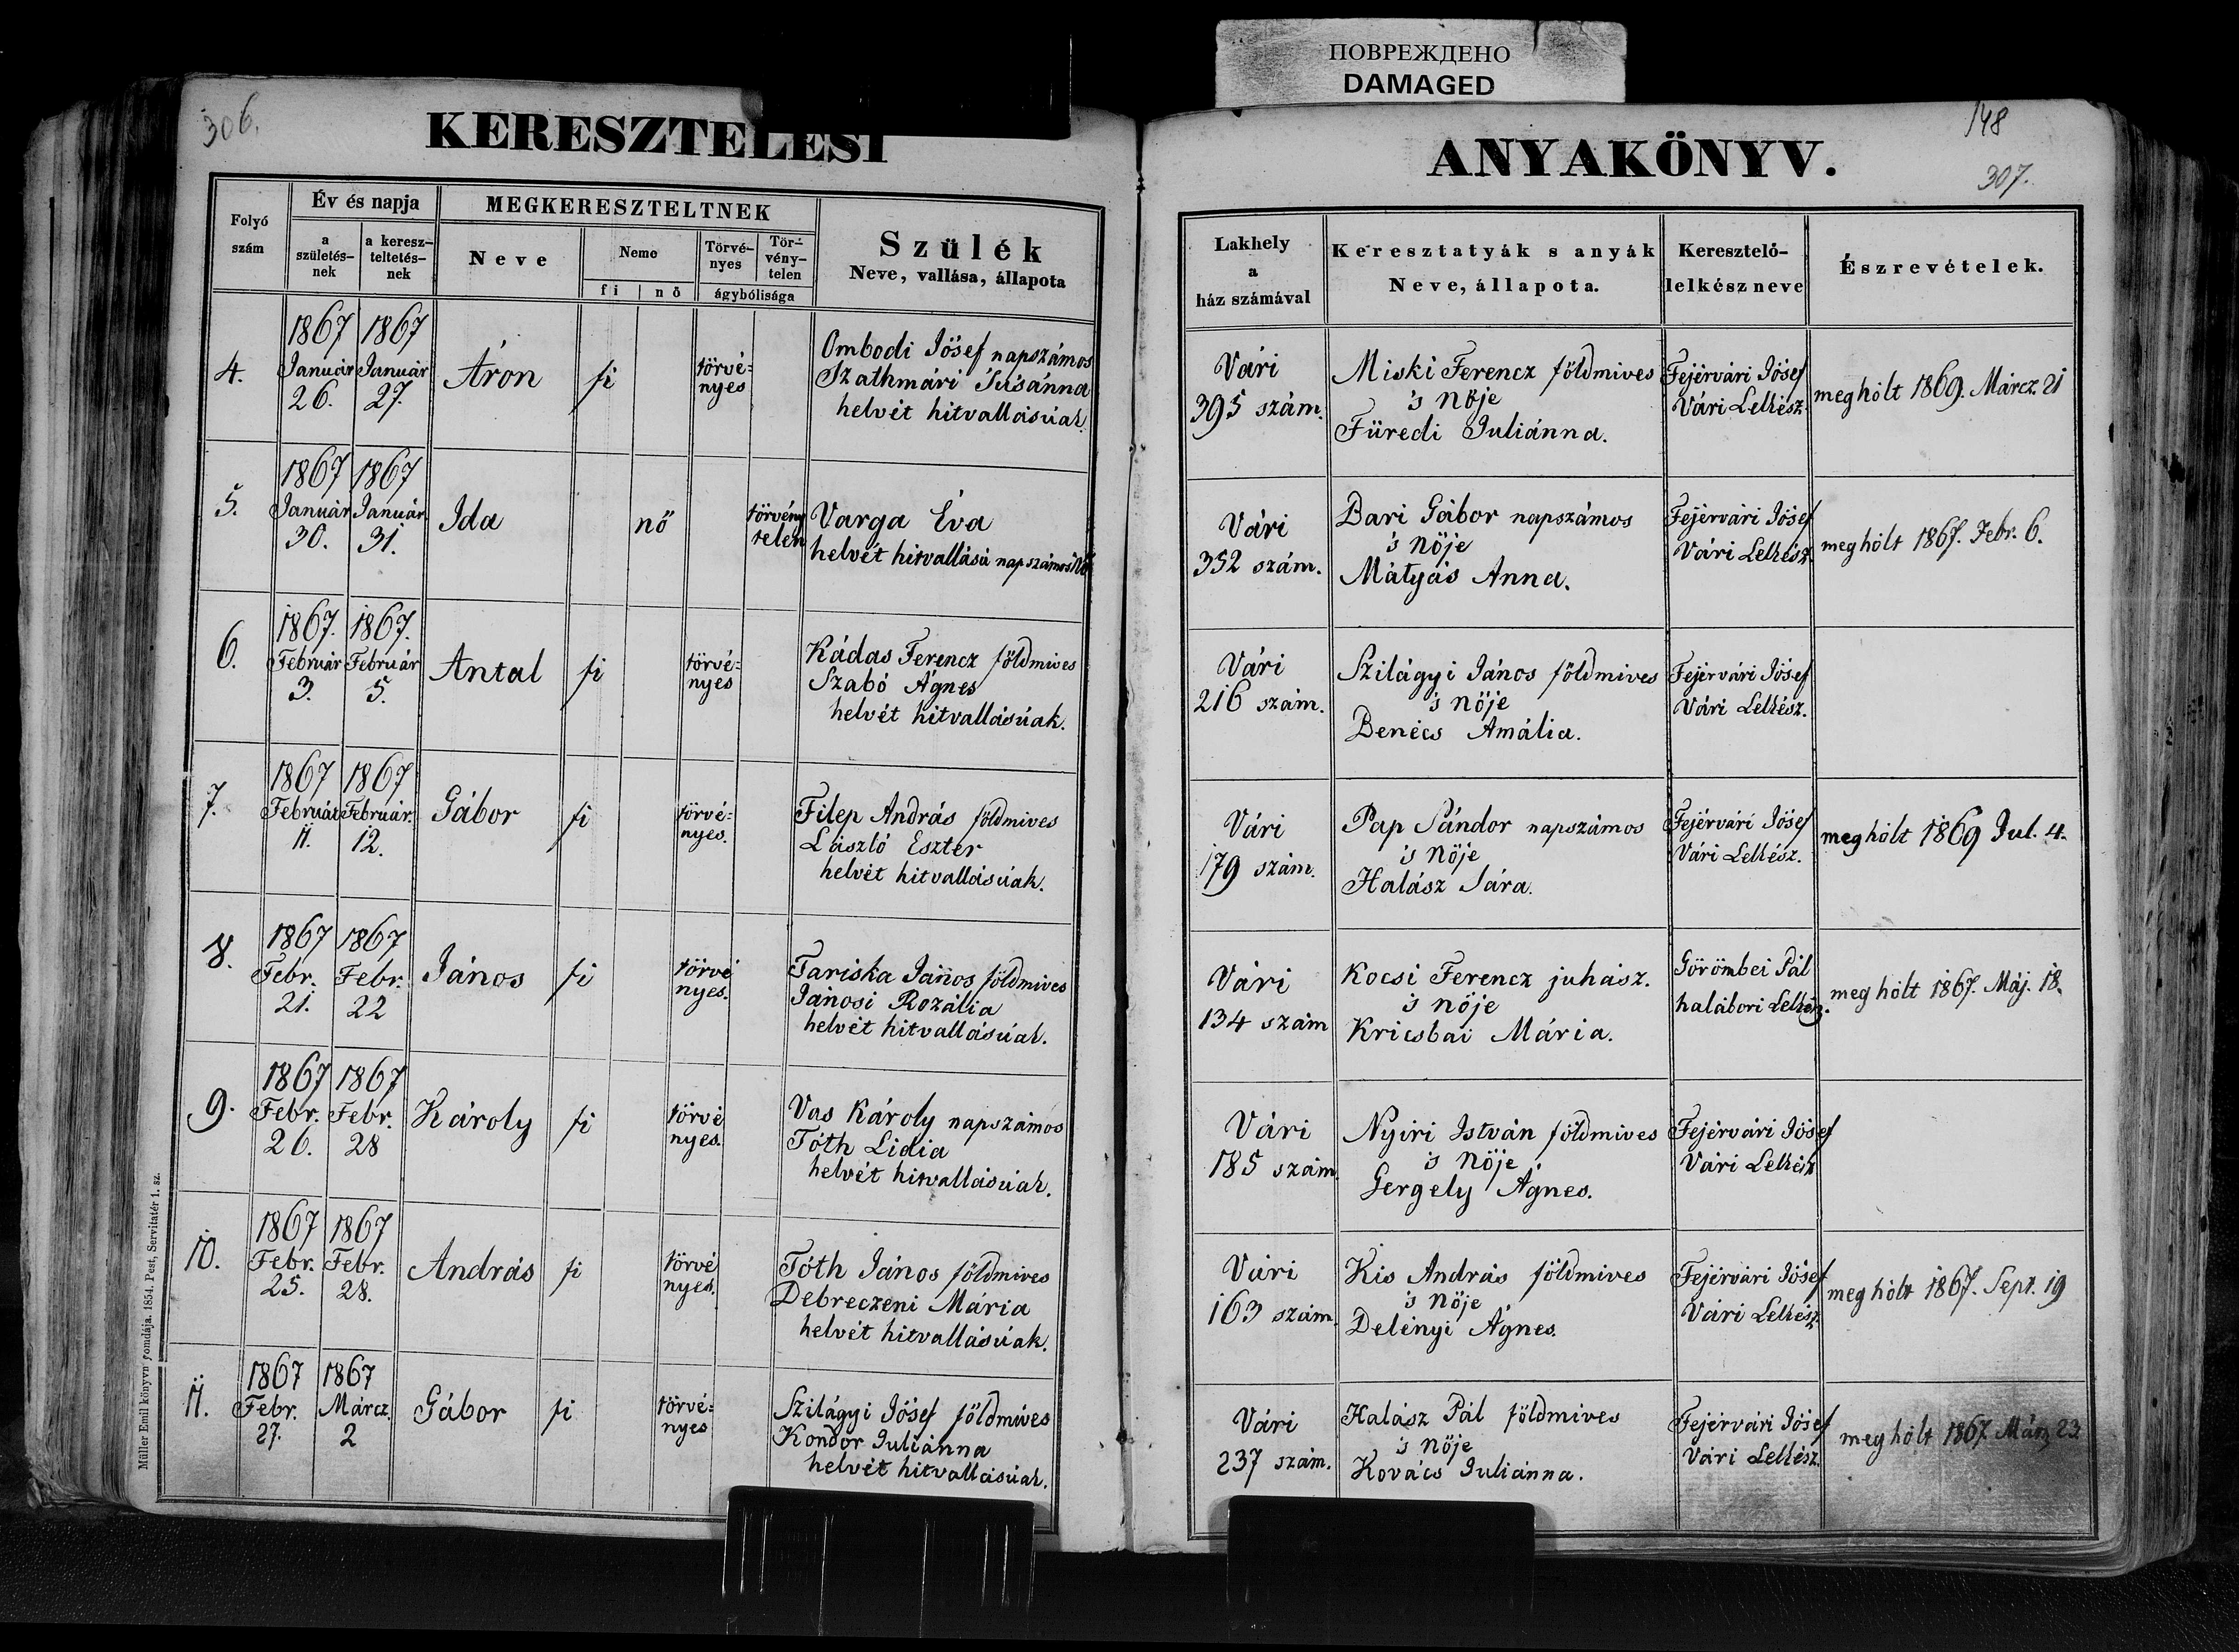 ПОВРЕЖДЕНО
DAMAGED
306.
KERESZTELESI
Folyó
szám
Év és napja
a
születés-
nek
a keresz-
teltetés-
nek
MEGKERESZTELTNEK
Neve
Neme
fi
nő
Törvé-
nyes
Tör-
vény-
telen
ágybólisága
Szülék
Neve, vallása, állapota
4.
1867
Január
26.
1867
Január
27.
Áron
fi
törvé=
nyes
Ombodi Jósef napszámos
Szathmári Susánna
helvét hitvallásúak.
5.
1867
Január
30.
1867
Január
31.
Ida
nő
törvény
telen
Varga Éva
helvét hitvallású napszámosnő
6.
1867.
Február
3.
1867.
Február
5.
Antal
fi
törvé=
nyes
Kádas Ferencz földmives
Szabó Ágnes
helvét hitvallásúak.
7.
1867
Február
11.
1867
Február.
12.
Gábor
fi
törvé=
nyes.
Filep András földmives
László Eszter
helvét hitvallásúak.
8.
1867
Febr.
21.
1867
Febr.
22
János
fi
törvé
nyes.
Tariska János földmives
Jánosi Rozália
helvét hitvallásúak.
9.
1867
Febr.
26.
1867
Febr.
28
Károly
fi
törvé
nyes.
Vas Károly napszámos
Tóth Lidia
helvét hitvallásúak.
10.
1867
Febr.
25.
1867
Febr.
28.
András
fi
törvé
nyes.
Tóth János földmives
Debreczeni Mária
helvét hitvallásúak.
11.
1867
Febr.
27.
1867
Márcz.
2
Gábor
fi
törvé=
nyes
Szilágyi Jósef földmives
Kondor Juliánna
helvét hitvallásúak.
Müller Emil könyvnyomdája. 1854. Pest, Servitatér 1. sz.
148
307.
ANYAKÖNYV.
Lakhely
a
ház számával
Keresztatyák s anyák
Neve, állapota.
Keresztelő-
lelkész neve
Észrevételek.
Vári
395 szám.
Miski Ferencz földmives
's nője
Füredi Juliánna.
Fejérvári Jósef
Vári Lelkész.
meghólt 1869. Márcz. 21
Vári
352 szám.
Bari Gábor napszámos
's nője
Mátyás Anna.
Fejérvári Jósef
Vári Lelkész.
meghólt 1867. Febr. 6.
Vári
216 szám.
Szilágyi János földmives
's nője
Benécs Amália.
Fejérvári Jósef
Vári Lelkész.
Vári
179 szám.
Pap Sándor napszámos
's nője
Halász Sára.
Fejérvári Jósef
Vári Lelkész.
meghólt 1869 Jul. 4.
Vári
134 szám
Kocsi Ferencz juhász.
's nője
Kricsbai Mária.
Görömbei Pál
halábori Lelkész.
meghólt 1867. Máj. 18.
Vári
185 szám.
Nyíri István földmives
's nője
Gergely Ágnes.
Fejérvári Jósef
Vári Lelkész
Vári
163 szám.
Kis András földmives
's nője
Delényi Ágnes.
Fejérvári Jósef
Vári Lelkész
meghólt 1867. Sept. 19
Vári
237 szám.
Halász Pál földmives
's nője
Kovács Juliánna.
Fejérvári Jósef
Vári Lelkész.
meghólt 1867 Márz 23